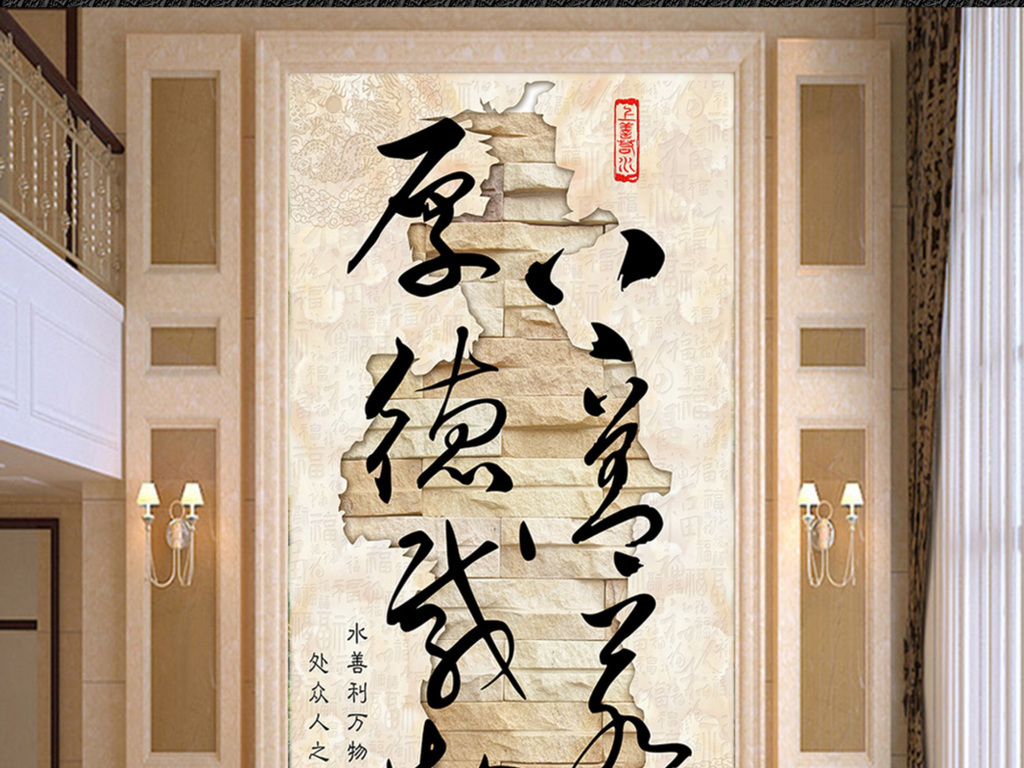 上善若水
上善若
厚德载
水善利万物
处众人之